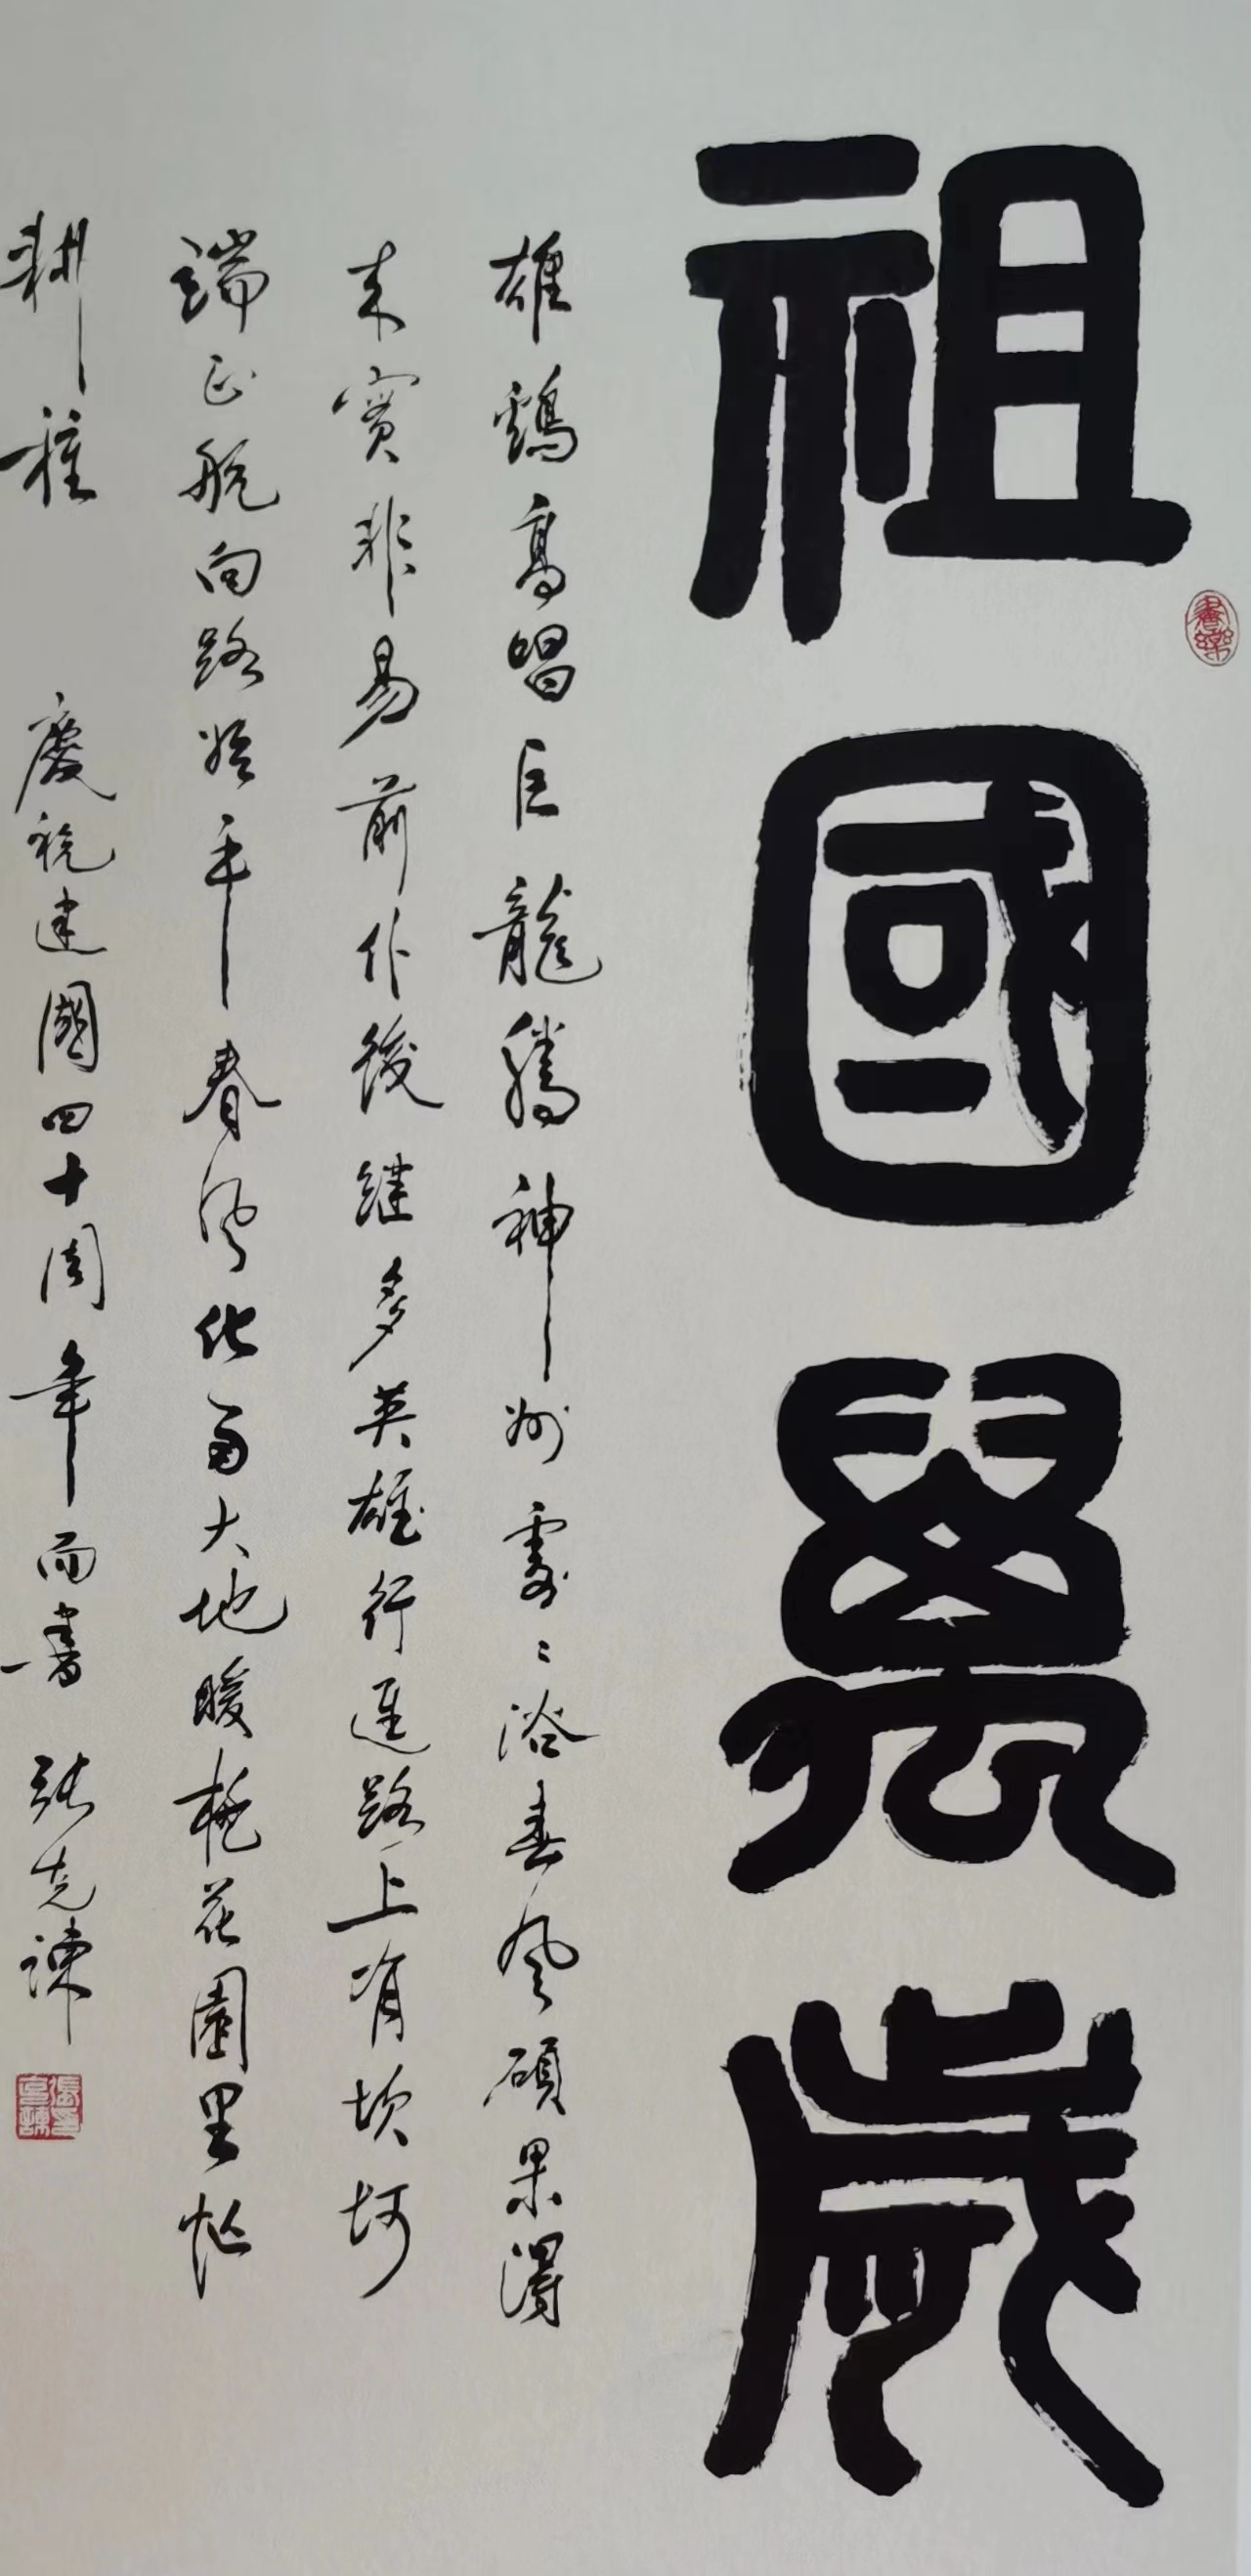 祖國萬歲
雄鷄高唱巨龍騰神州處〻浴春風碩果得
来實非易前仆後继多英雄行進路上有坎坷
端正航向路始平春风化雨大地暖花園里忙
耕種
慶祝建國四十周年而書 张克諫
書樂